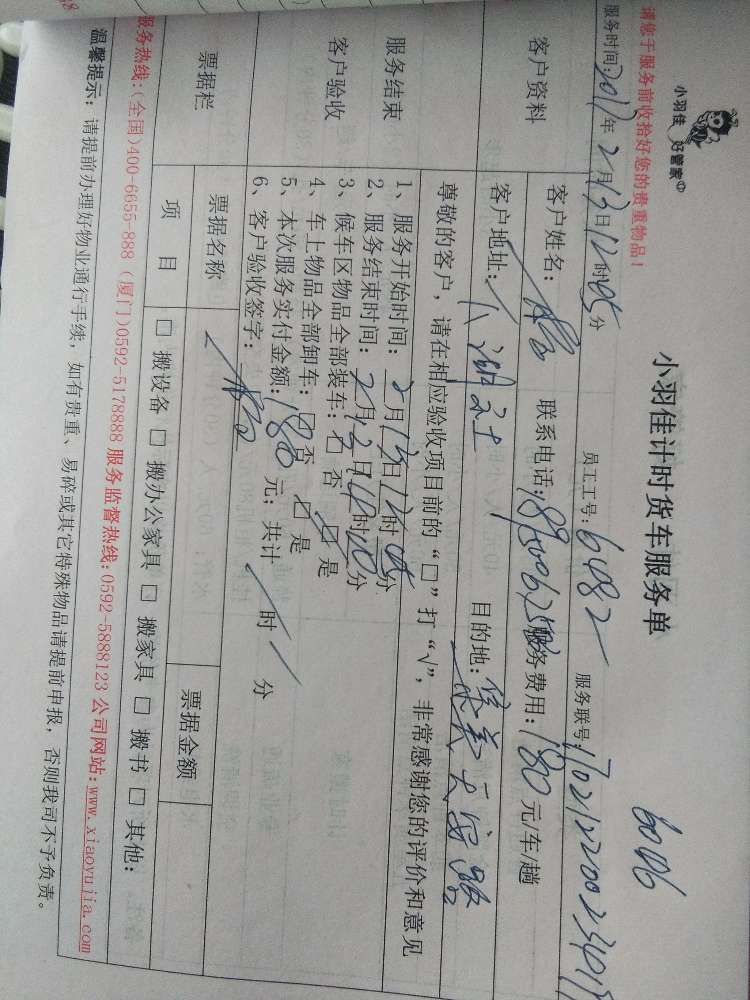 小羽佳 好管家
小羽佳计时货车服务单
6006
请您于服务前收拾好您的贵重物品！
服务时间:2017年2月13日12时05分 员工工号:6482 服务联号:
客户资料
客户姓名: 联系电话: 服务费用:180元/车/趟
客户地址: 目的地:
尊敬的客户，请在相应验收项目前的“□”打“√”，非常感谢您的评价和意见
服务结束
客户验收
1、服务开始时间: 2月13日12时05分
2、服务结束时间: 2月13日
3、候车区物品全部装车: □ 否 ☑ 是
4、车上物品全部卸车: □ 否 ☑ 是
5、本次服务实付金额:180元; 共计 / 时 / 分
6、客户验收签字:
票据栏
票据名称 票据金额
项目 □ 搬设备 □ 搬办公家具 □ 搬家具 □ 搬书 □ 其他:
服务热线:(全国)400-6655-888 (厦门)0592-5178888 服务监督热线:0592-5888123 公司网站:www.xiaoyujia.com
温馨提示: 请提前办理好物业通行手续，如有贵重、易碎或其它特殊物品请提前申报，否则我司不予负责。